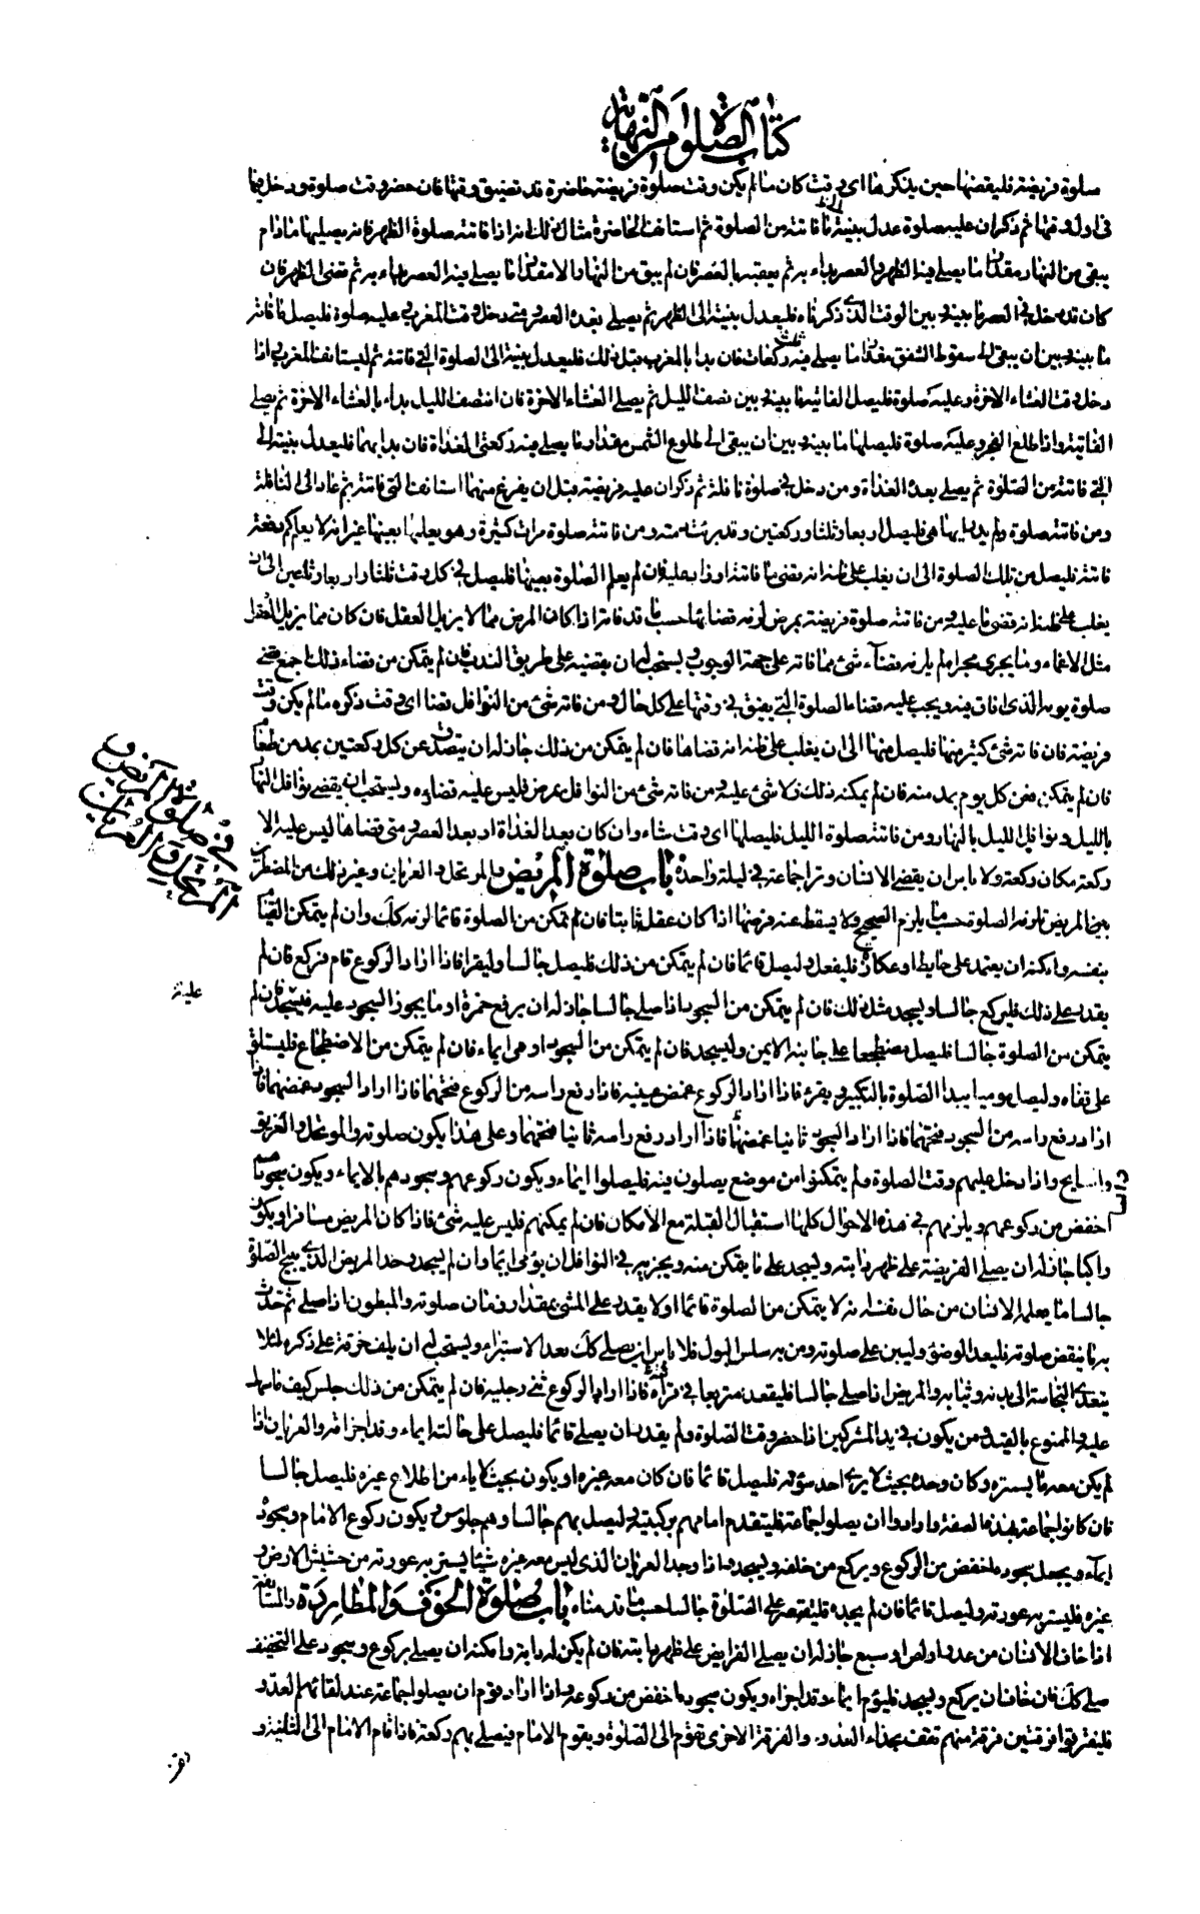 كتاب الصلوة من النهاية
صلوة فريضة فليقضها حين يذكرها اى وقت كان ما لم يكن وقت صلوة فريضة حاضرة قد تضيق وقتها فان حضر وقت صلوة ودخل فيها
فى اول وقتها ثم ذكر ان عليه صلوة عدل بنيته الى ما فاتته من الصلوة ثم استانف الحاضرة مثال ذلك انه اذا فاتته صلوة الظهر فانه يصليها ما دام
يبقى من النهار مقدار ما يصلى فيه الظهر والعصر يبداء به ثم يعقبه بالعصر فان لم يبق من النهار الا مقدار ما يصلى فيه العصر بداء به ثم قضى الظهر فان
كان قد دخل فى العصر فيما بينه وبين الوقت الذى ذكرناه فليعدل بنيته الى الظهر ثم يصلى بعده العصر ومتى دخل وقت المغرب وعليه صلوة فليصل ما فاته
ما بينه وبين ان يبقى الى سقوط الشفق مقدار ما يصلى فيه ثلث ركعات فان بدا بالمغرب قبل ذلك فليعدل بنيته الى الصلوة التى فاتته ثم ليستانف المغرب اذا
دخل وقت العشاء الاخرة وعليه صلوة فليصل الفايتة ما بينه وبين نصف الليل ثم يصلى العشاء الاخرة فان انتصف الليل بداء بالعشاء الاخرة ثم يصلى
الفايتة واذا طلع الفجر وعليه صلوة فليصلها ما بينه وبين ان يبقى الى طلوع الشمس مقدار ما يصلى فيه ركعتى الغداة فان بدا بهما فليعدل بنيته الى
التى فاتته من الصلوة ثم يصلى بعده الغداة ومن دخل فى صلوة نافلة ثم ذكر ان عليه فريضة قبل ان يفرغ منها استانف التى فاتته ثم عاد الى النافلة
ومن فاتته صلوة ولم يدر ايها هى فليصل اربعا وثلثا وركعتين وقد برئت ذمته ومن فاتته صلوة مرات كثيرة وهو يعلمها بعينها غير انه لا يعلم كم دفعة
فاتته فليصل من تلك الصلوة الى ان يغلب على ظنه انه قضى ما فاتته او زاد عليه فان لم يعلم الصلوة بعينها فليصل فى كل وقت ثلثا واربعا وركعتين الى ان
يغلب على ظنه انه قضى ما عليه ومن فاتته صلوة فريضة بمرض لزمه قضائها حسب ما قد فاته اذا كان المرض مما لا يزيل العقل فان كان مما يزيل العقل
مثل الاغماء وما يجرى مجراه لم يلزمه قضاء شئ مما فاته على جهة الوجوب ويستحب له ان يقضيه على طريق الندب فان لم يتمكن من قضاء ذلك اجمع قضى
صلوة يومه الذى افاق فيه ويجب عليه قضاء الصلوة التى يفيق فى وقتها على كل حال ومن فاته شئ من النوافل قضا اى وقت ذكره ما لم يكن وقت
فريضة فان فاته شئ كثير منها فليصل منها الى ان يغلب على ظنه انه قضاها فان لم يتمكن من ذلك جاز له ان يتصدق عن كل ركعتين بمد من طعام
فان لم يتمكن فعن كل يوم بمد منه فان لم يمكنه ذلك فلا شئ عليه ومن فاته شئ من النوافل بمرض فليس عليه قضاؤه ويستحب ان يقضى نوافل النهار
بالليل ونوافل الليل بالنهار ومن فاتته صلوة الليل فليصلها اى وقت شاء وان كان بعد الغداة او بعد العصر ومتى قضاها ليس عليه الا
ركعة مكان ركعة ولا باس ان يقضى الانسان وترا جماعة فى ليلة واحدة باب صلوة المريض والموتحل والعريان وغير ذلك من المضطرين
المريض تلزمه الصلوة حسب ما يلزم الصحيح ولا يسقط عنه فرضها اذا كان عقله ثابتا فان تمكن من الصلوة قائما لزمه كذلك وان لم يتمكن القيام
بنفسه وامكنه ان يعتمد على حايط او عكازة فليفعل وليصل قائما فان لم يتمكن من ذلك فليصل جالسا وليقرا فاذا اراد الركوع قام فركع فان لم
يقدر على ذلك فليركع جالسا وليسجد مثل ذلك فان لم يتمكن من السجود اذا صلى جالسا جاز له ان يرفع خمرة او ما يجوز السجود عليه فيسجد عليه فان لم
يتمكن من الصلوة جالسا فليصل مضطجعا على جانبه الايمن وليسجد فان لم يتمكن من السجود اومى ايماء فان لم يتمكن من الاضطجاع فليستلق
على قفاه وليصل موميا يبدا الصلوة بالتكبير ويقرء فاذا اراد الركوع غمض عينيه فاذا رفع راسه من الركوع فتحهما فاذا اراد السجود غمضهما فاذا
اراد رفع راسه من السجود فتحهما فاذا اراد السجود ثانيا غمضهما فاذا اراد رفع راسه ثانيا فتحهما وعلى هذا يكون صلوته والموتحل والغريق
والسابح واذا دخل عليهم وقت الصلوة ولم يتمكنوا من موضع يصلون فيه فليصلوا ايماء ويكون ركوعهم وسجودهم بالايماء ويكون سجودهم
اخفض من ركوعهم ويلزمهم فى هذه الاحوال كلها استقبال القبلة مع الامكان فان لم يمكنهم فليس عليه شئ فاذا كان المريض مسافرا ويكون
راكبا جاز له ان يصلى الفريضة على ظهر دابته وليسجد على ما يتمكن منه ويجزيه فى النوافل ان يؤمى ايماء وان لم يسجد وحد المرض الذى يبيح الصلوة
جالسا ما يعلمه الانسان من حال نفسه انه لا يتمكن من الصلوة قائما او لا يقدر على المشى بمقدار زمان صلوته والمبطون اذا صلى ثم حدث
به ما ينقض صلوته فليعد الوضوء وليبن على صلوته ومن به سلس البول فلا باس ان يصلى كذلك بعد الاستبراء ويستحب له ان يلف خرقة على ذكره لئلا
يتعدى النجاسة الى بدنه وثيابه والمريض اذا صلى جالسا فليقعد متربعا فى حال قراءته فاذا اراد الركوع ثنى رجليه فان لم يتمكن من ذلك جلس كيف ما سهل
عليه والممنوع بالقيد ومن يكون فى يد المشركين اذا حضر وقت الصلوة ولم يقدر ان يصلى قائما فليصل على حالته ايماء وقد اجزائه والعريان اذا
لم يكن معه ما يستره وكان وحده بحيث لا يرى احد سوئته فليصل قائما فان كان معه غيره او يكون بحيث لا يامن اطلاع غيره فليصل جالسا
فان كانوا جماعة بهذه الصفة وارادوا ان يصلوا جماعة فليتقدم امامهم بركبتيه وليصل بهم جالسا وهم جلوس ويكون ركوع الامام وسجوده
ايماء ويجعل سجوده اخفض من الركوع ويركع من خلفه ويسجد واذا وجد العريان الذى ليس معه غيره شيئا يستر به عورته من حشيش الارض و
غيره فليستر به عورته وليصل قائما فان لم يجده فليقتصر على الصلوة جالسا حسب ما قدمناه باب صلوة الخوف والمطاردة والمسايفة
اذا خاف الانسان من عدو او لص او سبع جاز له ان يصلى الفرايض على ظهر دابته فان لم يكن له دابة وامكنه ان يصلى بركوع وسجود على التخفيف
صلى كذلك فان خاف ان يركع ويسجد فليؤم ايماء وقد اجزاه ويكون سجوده اخفض من ركوعه واذا اراد قوم ان يصلوا جماعة عند لقائهم العدو
فليفترقوا فرقتين فرقة منهم تقف بحذاء العدو والفرقة الاخرى تقوم الى الصلوة ويقوم الامام فيصلى بهم ركعة فاذا قام الامام الى الثانية و
فى صلوة المريض و
الموتحل والعريان
علية